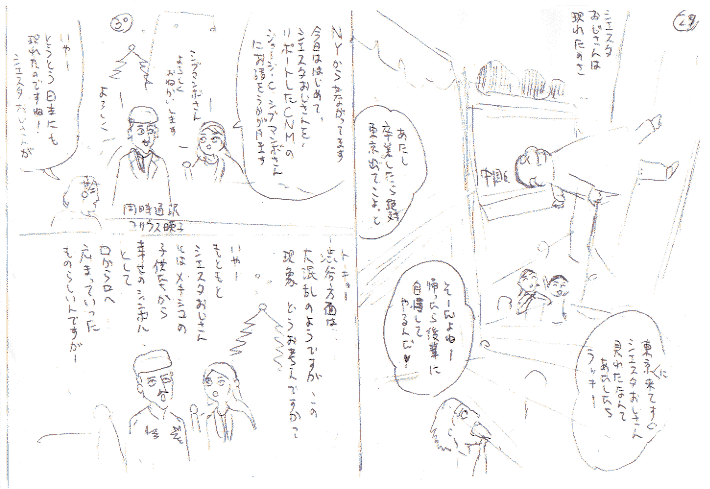 29
シエスタ
おじさんは
現れたのさ
あたし
卒業したら絶対
東京出てこよっと
中目
東京に来てすぐ
シエスタおじさん
見れたなんて
あたしたち
ラッキー!
そーんよねー
帰ったら後輩に
自慢して
やるんだ♥
30
NYからつながってます
今日ははじめて、
シエスタおじさんを、
リポートしたCNNの
ジョージ・C・シプマンボさん
にお話をうかがいます
シプマンボさん
よろしく
おねがいします
よろしく
いやー
とうとう日本にも
現れたのですね!
シエスタおじさんが
同時通訳
コリウス暎子
トーキョー
渋谷方面は
大混乱のようですが この
現象 どうお考えですかっ?
いやー
もともと
シエスタおじさん
とはメキシコの
子供たちから
幸せのシンボル
として
口から口へ
広まっていった
ものらしいんですがー